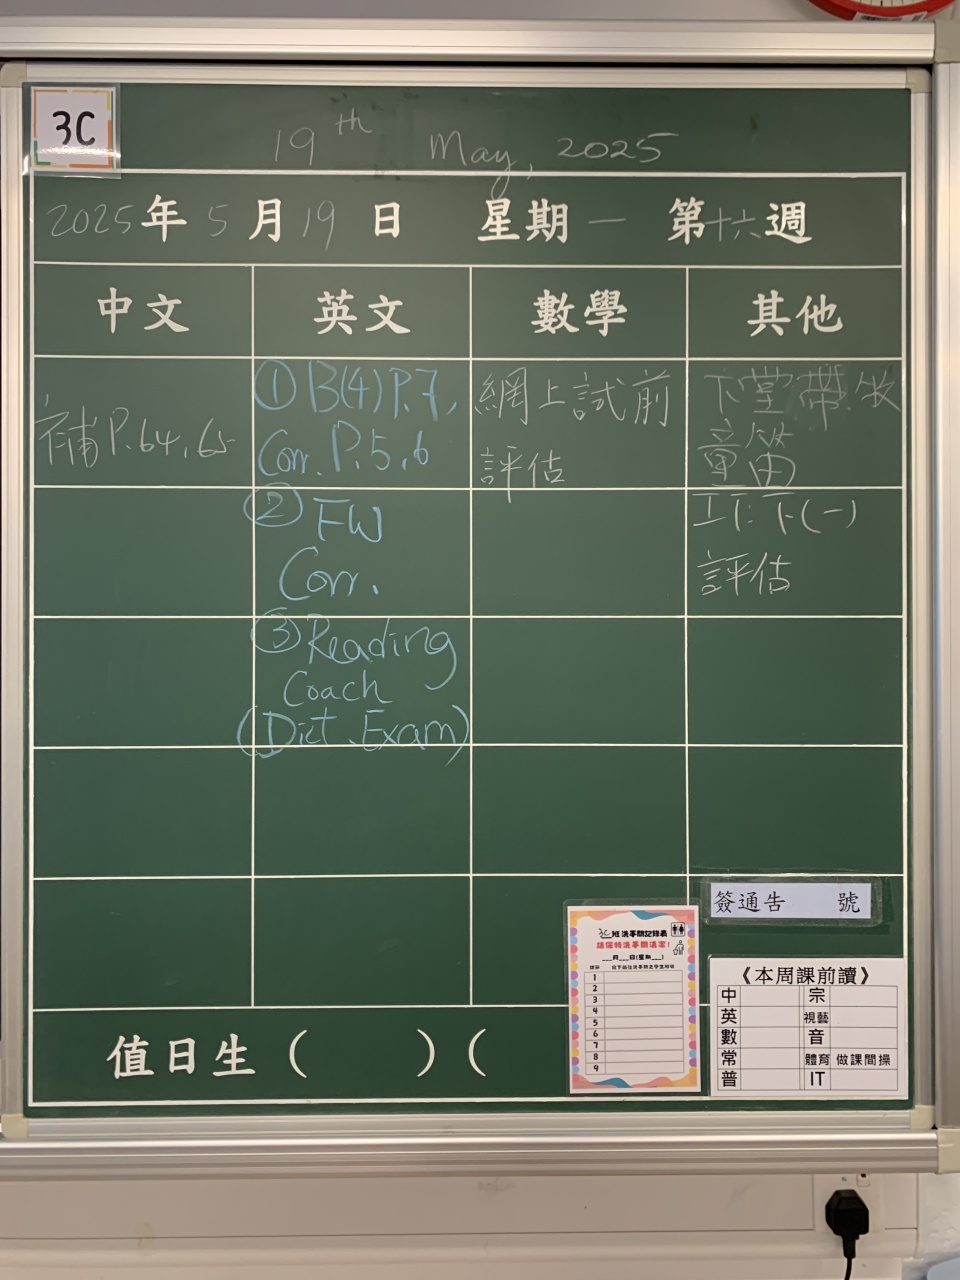 3C
19th May, 2025
2025年5月19日 星期一 第十六週
中文 英文 數學 其他
補P.64,65
①B(4)P.7,
Corr. P.5,6
②FW
Corr.
③Reading
Coach
(Dict. Exam)
網上試前
評估
下堂帶牧
童笛
下(一)
評估
簽通告 號
3C班洗手間記錄表
請保持洗手間清潔!
___月___日(星期___)
1
2
3
4
5
6
7
8
9
《本周課前讀》
中 宗
英 視藝
數 音
常 體育 做課間操
普 IT
值日生( )(